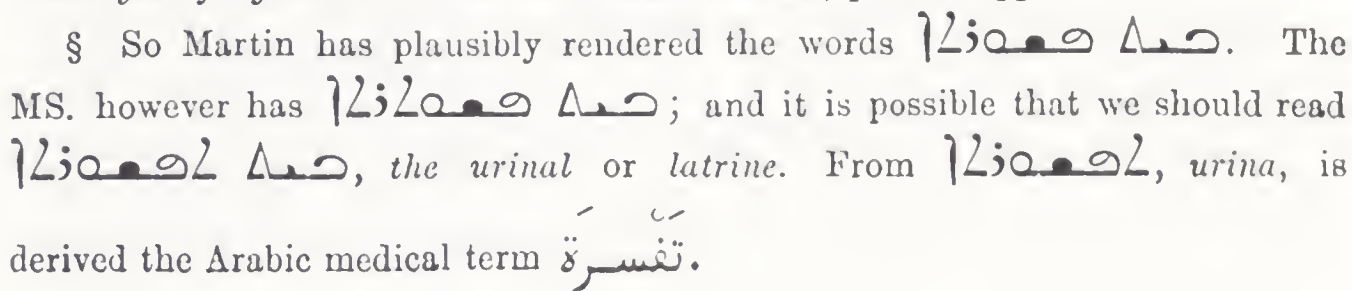 § So Martin has plausibly rendered the words ܒܝܬ ܦܫܘܪܬܐ. The
MS. however has ܒܝܬ ܦܫܘܬܪܬܐ; and it is possible that we should read
ܒܝܬ ܬܦܫܘܪܬܐ, the urinal or latrine. From ܬܦܫܘܪܬܐ, urina, is
derived the Arabic medical term تَفْسرَة.